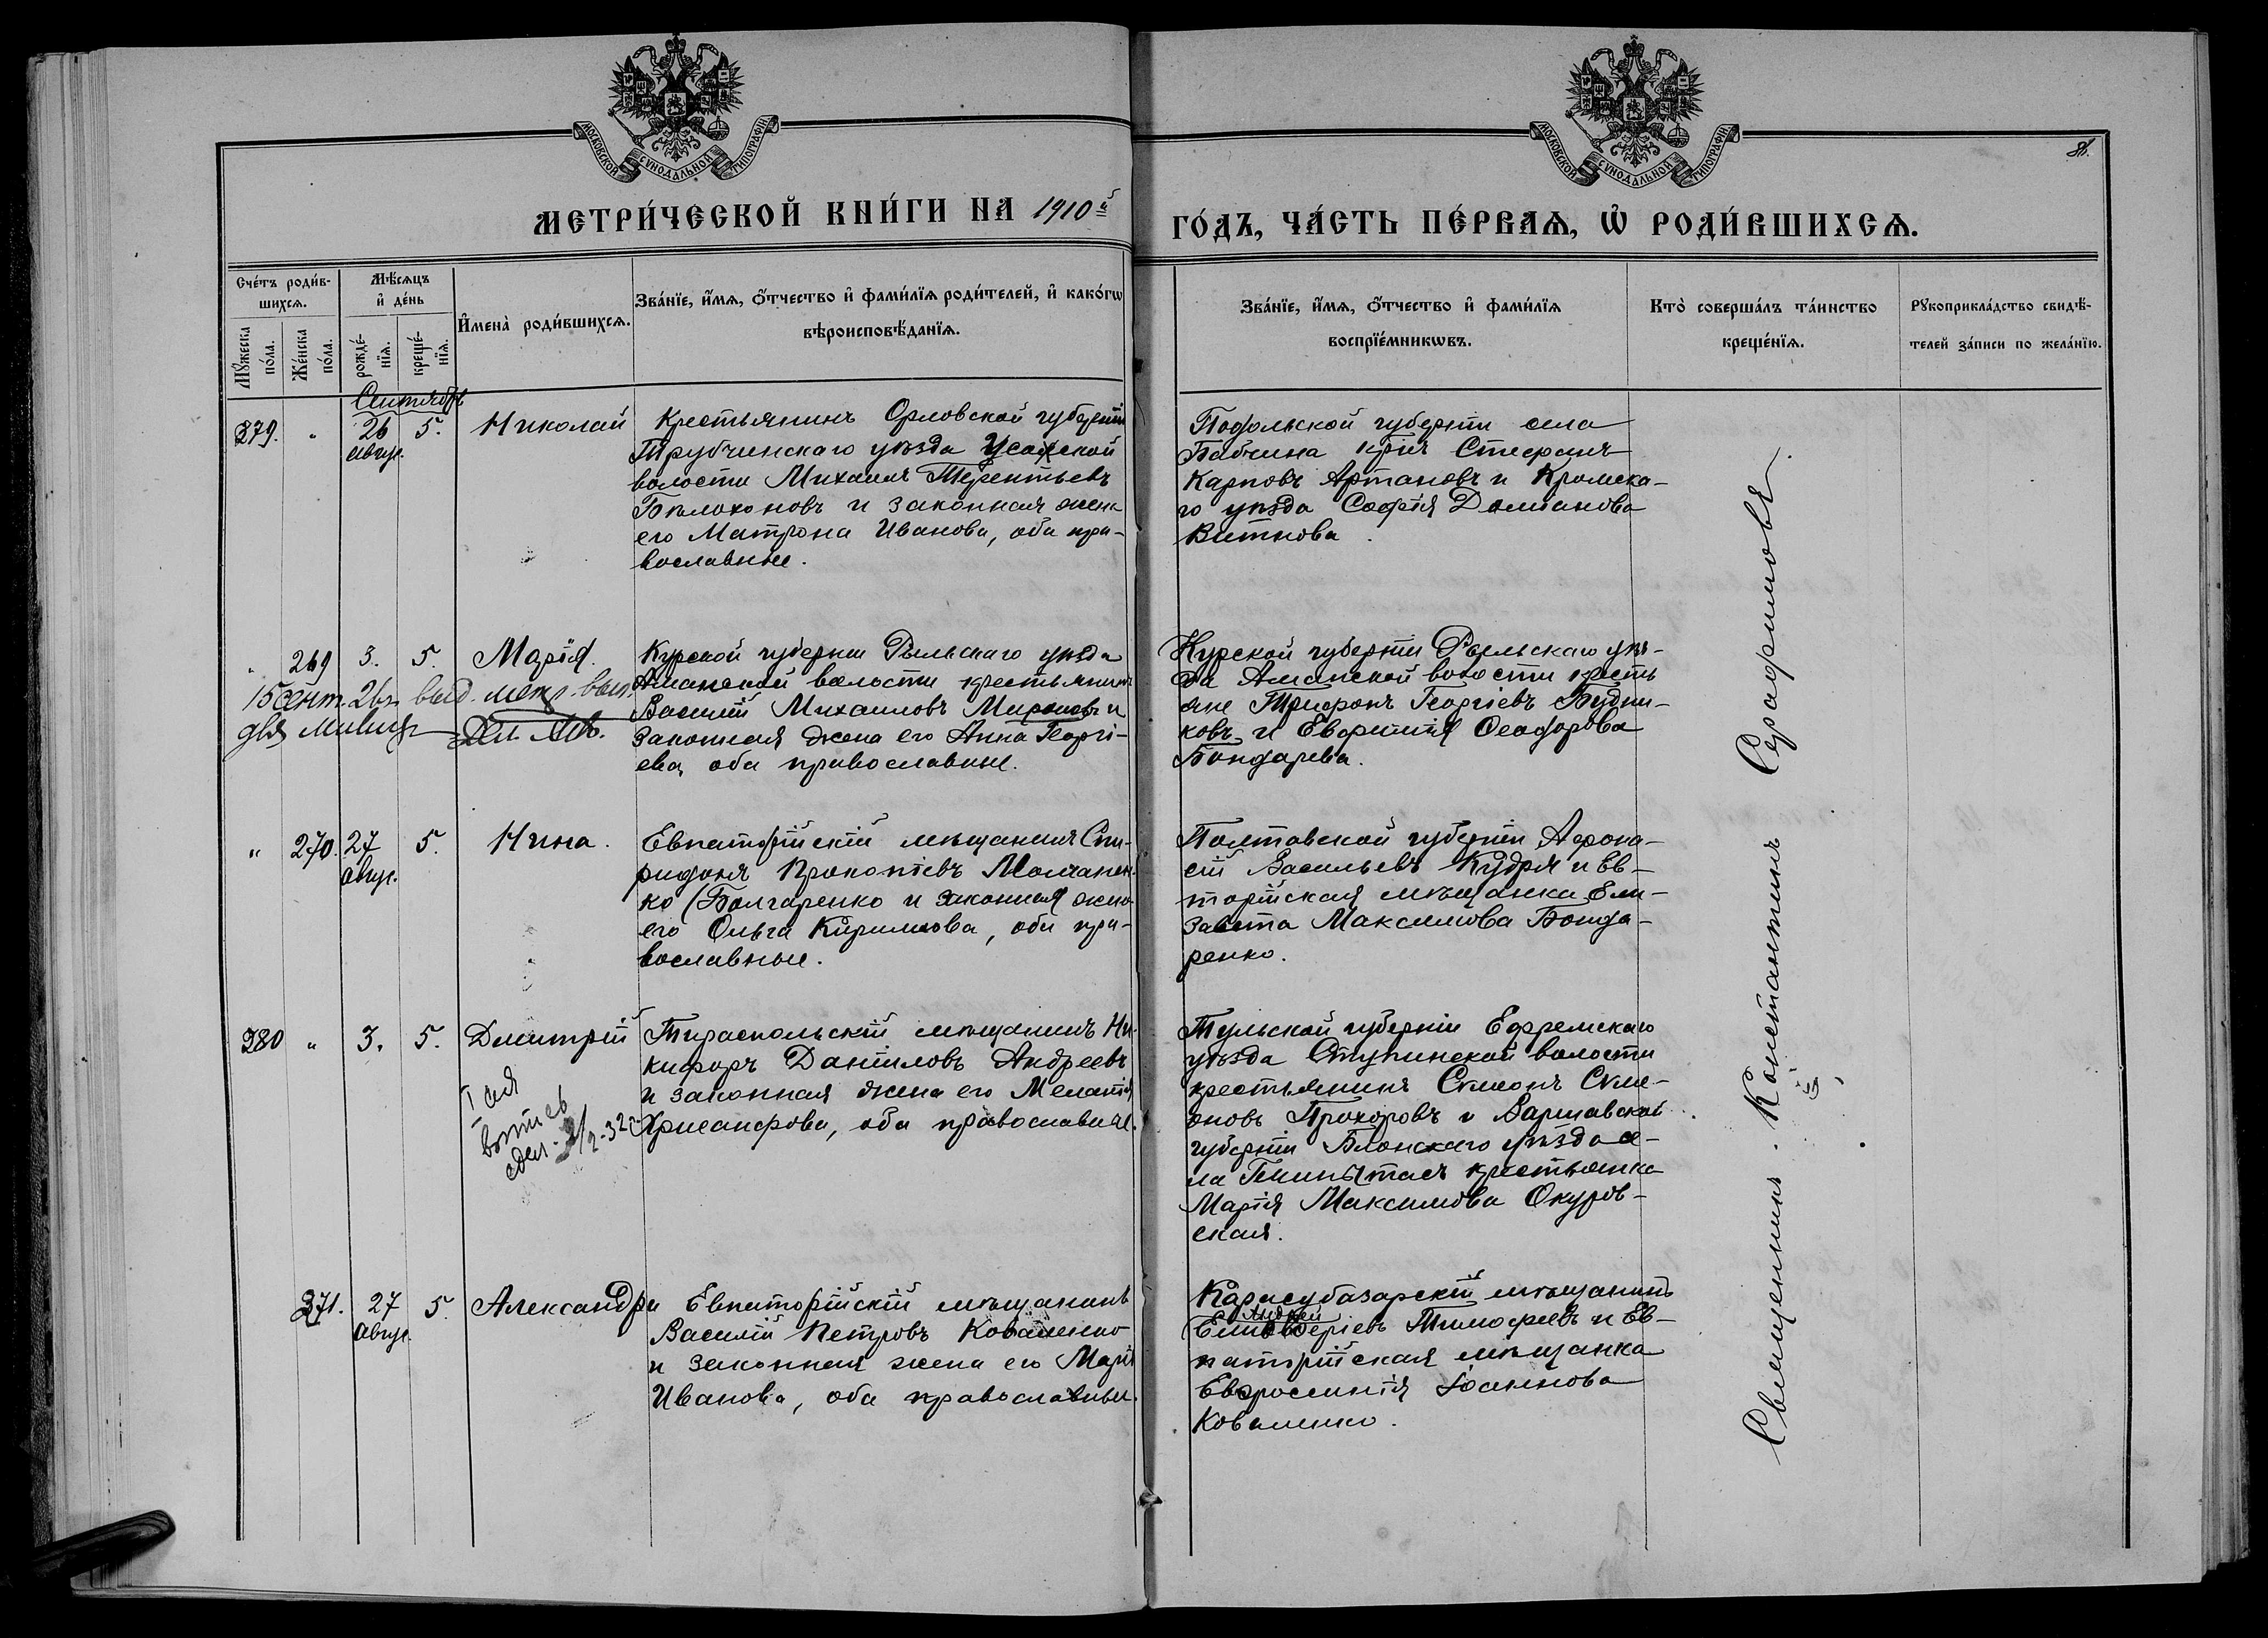 МОСКОВСКОЙ СѴНОДАЛЬНОЙ ТИПОГРАФІИ
МОСКОВСКОЙ СѴНОДАЛЬНОЙ ТИПОГРАФІИ
МЕТРИ́ЧЕСКОЙ КНИ́ГИ НА 1910й
ГО́ДЪ, ЧА́СТЬ ПЕ́РВАѦ, Ѡ҆ РОДИ́ВШИХСѦ.
Сче́тъ роди́в-
шихсѧ.
Мꙋ́жеска по́ла.
Же́нска по́ла.
Мѣ́сѧцъ
и҆ де́нь
рожде́-
нїѧ.
креще́-
нїѧ.
И҆мена̀ роди́вшихсѧ.
Зва́нїе, и҆́мѧ, ѻ҆́тчество и҆ фами́лїѧ роди́телей, и҆ како́гѡ
вѣроисповѣ́данїѧ.
Зва́нїе, и҆́мѧ, ѻ҆́тчество и҆ фами́лїѧ
воспрїе́мникѡвъ.
Кто̀ соверша́лъ та́инство
креще́нїѧ.
Рꙋкоприкла́дство свидѣ́-
телей за́писи по жела́нїю.
Сентябрь
279. " 26 авгус. 5. Николай
Крестьянинъ Орловской губерніи
Трубчинскаго уѣзда Усожской
волости Михаилъ Терентьевъ
Бѣлохоновъ и законная жена
его Матрона Иванова, оба пра-
вославные.
Подольской губерніи села
Бабчина кр–нъ Стефанъ
Карповъ Артановъ и Кромска-
го уѣзда Софія Даміанова
Витнова.
" 269 3. 5. Марія.
15 сент. 26г. выд. метр. вып.
для милиц.
Курской губерніи Рыльскаго уѣзда
Аманской волости крестьянинъ
Василій Михаиловъ Мироновъ и
законная жена его Анна Георгі-
ева, оба православные.
Курской губерніи Рыльскаго уѣз-
да Аманской волости кресть
яне Трифонъ Георгіевъ Будни-
ковъ и Евфимія Ѳеодорова
Бондарева.
" 270. 27 авгус. 5. Нина.
Евпаторійскій мѣщанинъ Спи-
ридонъ Прокопіевъ Молчанен-
ко (Болгаренко и законная жена
его Ольга Кириллова, оба пра-
вославные.
Полтавской губерніи Афона-
сій Васильевъ Кудря и Ев-
торійская мѣщанка Ели-
завета Максимова Бонда-
ренко.
280 " 3. 5. Димитрій
Тираспольскій мѣщанинъ Ни-
кифоръ Даніиловъ Андреевъ
и законная жена его Меланія
Хрисанфова, оба православные.
Тульской губерніи Ефремскаго
уѣзда Ступинской волости
крестьянинъ Симеонъ Симе-
оновъ Прохоровъ и Варшавской
губерніи Блонскаго уѣзда се-
ла крестьянка
Марія Максимова Окуров-
ская.
271. 27 авгус. 5 Александра
Евпаторійскій мѣщанинъ
Василій Петровъ Коваленко
и законная жена его Марія
Иванова, оба православные.
Карасубазарскій мѣщанинъ
Андрей
Тимофеевъ и Ев-
паторійская мѣщанка
Евфросинія Іоаннова
Коваленко.
Священникъ Константинъ Серафимовъ.